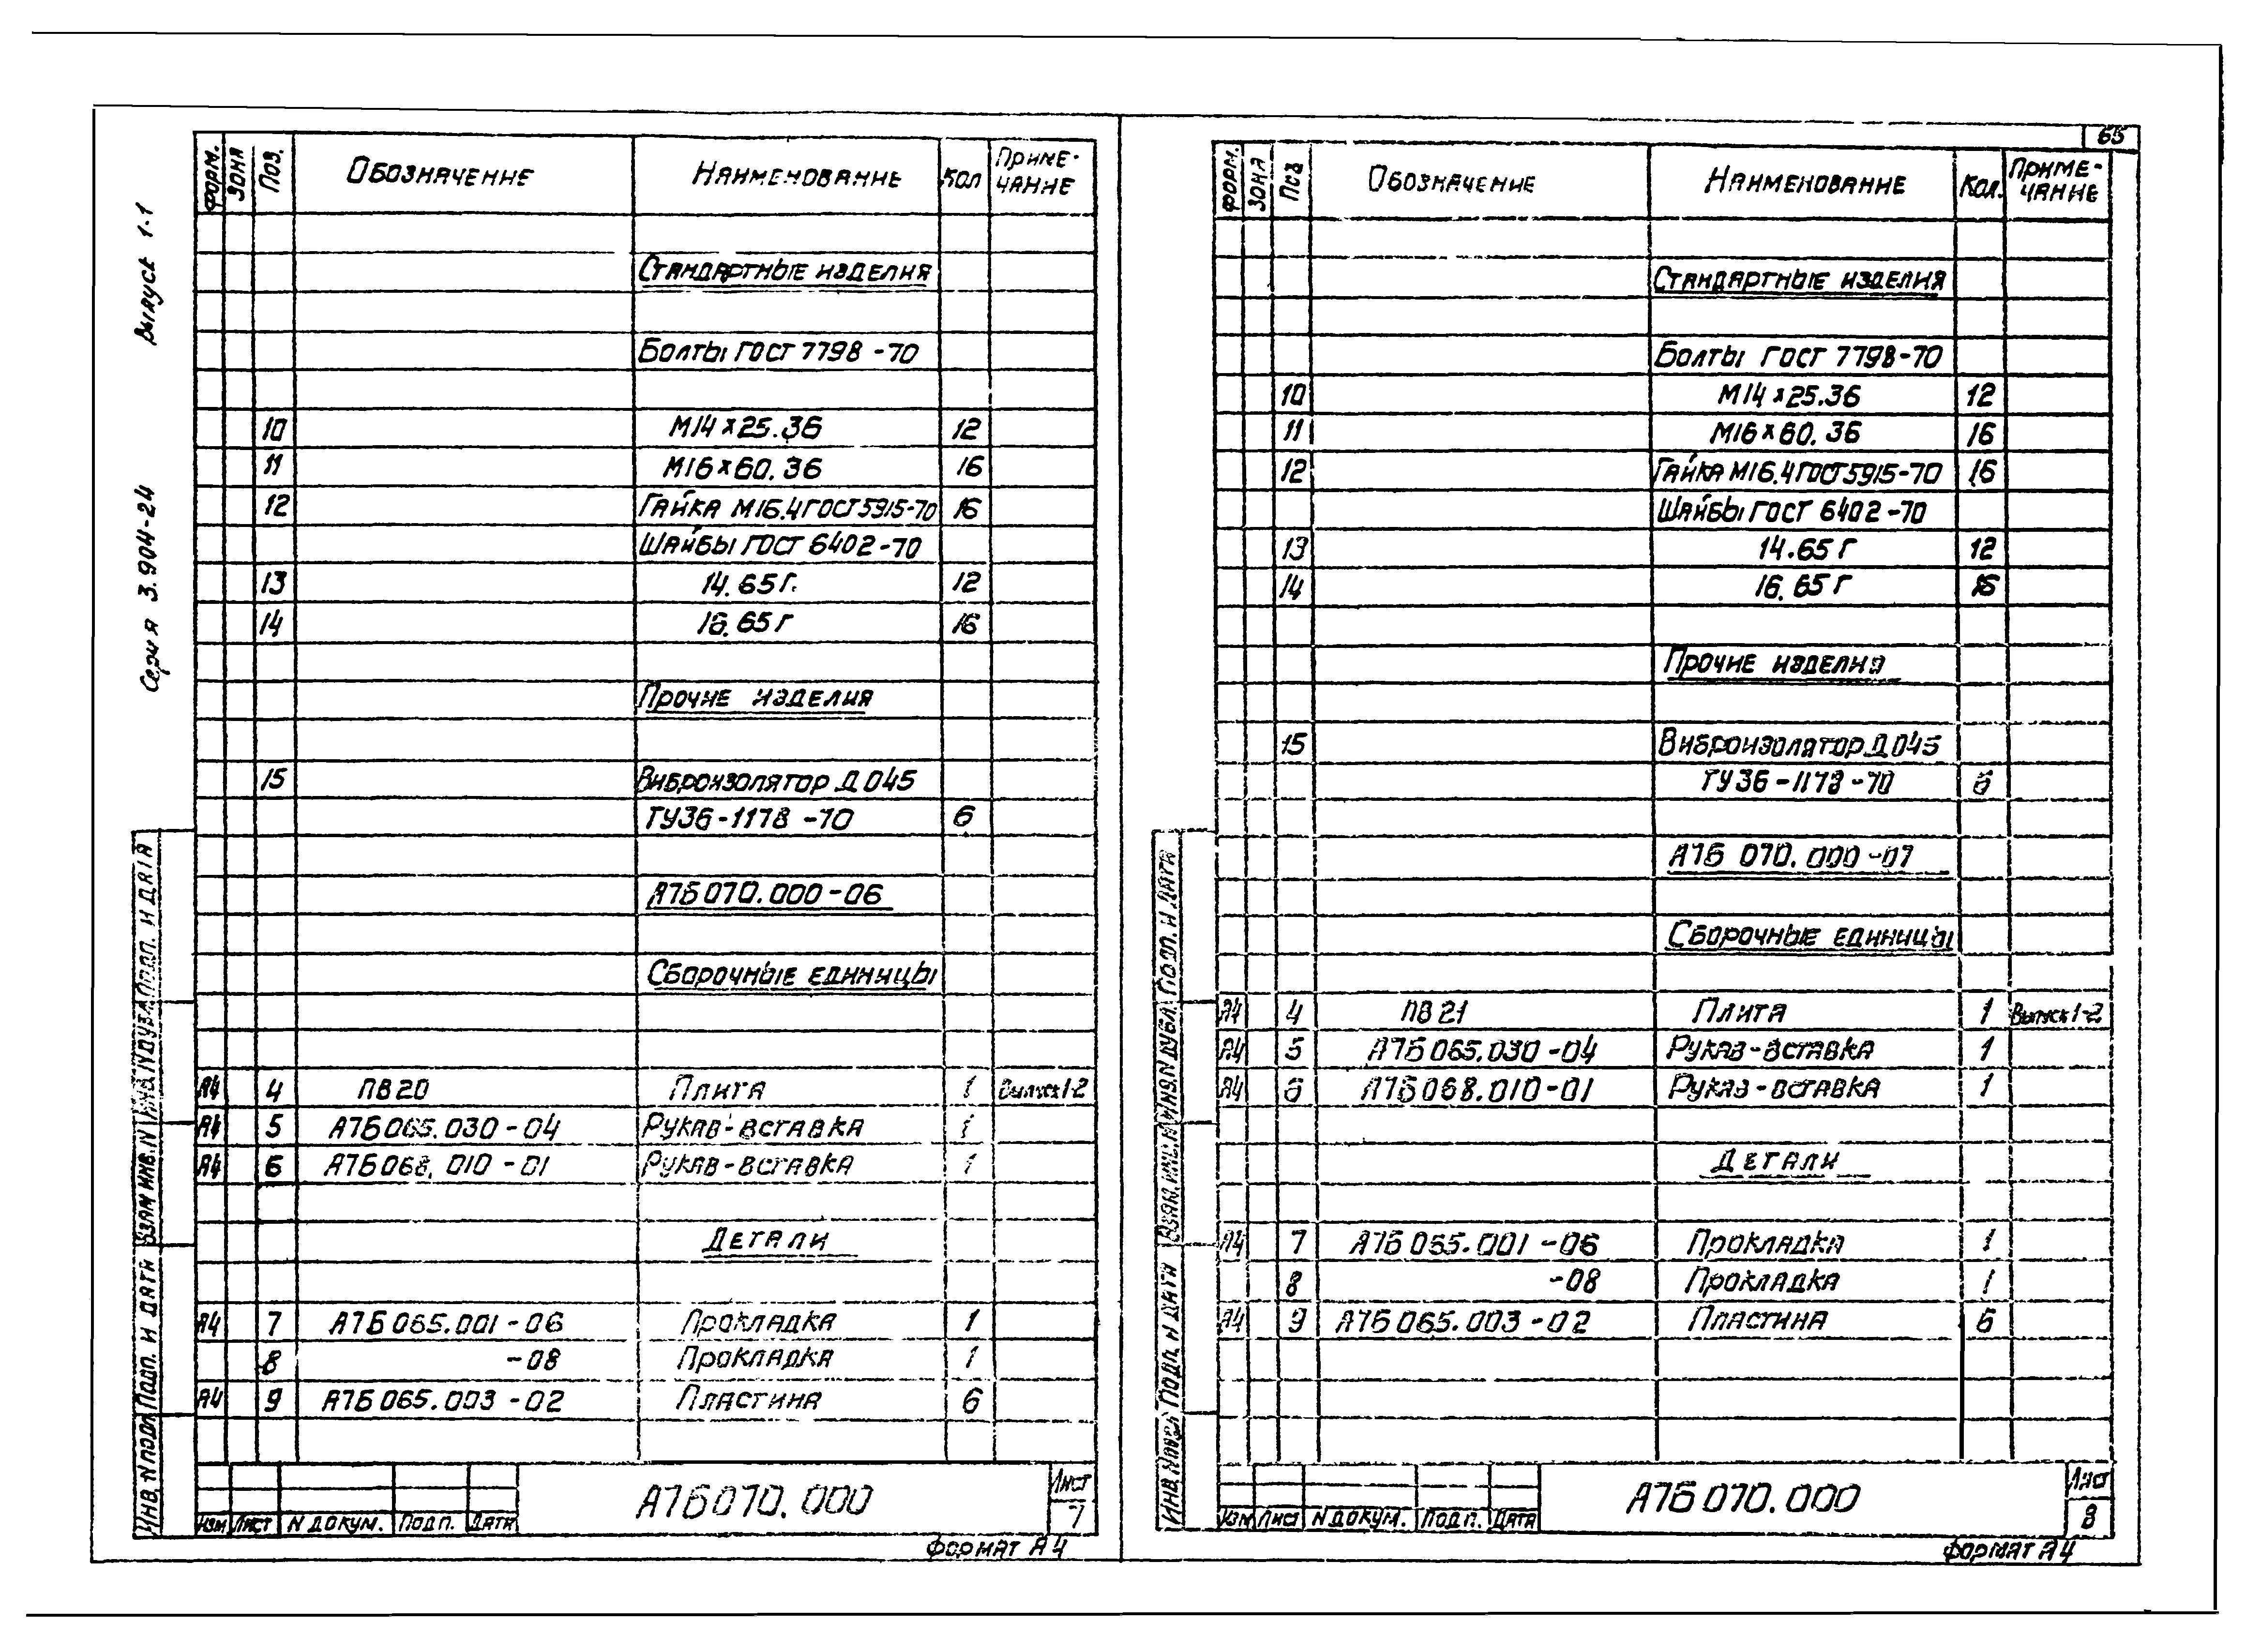 65
Выпуск 1-1
Серия 3.904-24
Форм. Зона Поз. Обозначение Наименование Кол Приме-чание
Стандартные изделия
Болты ГОСТ 7798-70
10 М14х25.36 12
11 М16х60.36 16
12 Гайка М16.4 ГОСТ 5915-70 16
Шайбы ГОСТ 6402-70
13 14.65Г. 12
14 16.65Г 16
Прочие изделия
15 Виброизолятор Д045
ТУ36-1178-70 6
А7Б070.000-06
Сборочные единицы
А4 4 ПВ20 Плита 1 Выпуск 1-2
А4 5 А7Б065.030-04 Рукав-вставка 1
А4 6 А7Б068.010-01 Рукав-вставка 1
Детали
А4 7 А7Б065.001-06 Прокладка 1
8 -08 Прокладка 1
А4 9 А7Б065.003-02 Пластина 6
Инв. N подл Подп. и дата Взам инв. N Инв. N дубл Подп. и дата
Изм Лист N докум. Подп. Дата
А7Б070.000
Лист
7
Формат А4
Форм. Зона Поз Обозначение Наименование Кол. Приме-чание
Стандартные изделия
Болты ГОСТ 7798-70
10 М14х25.36 12
11 М16х60.36 16
12 Гайка М16.4 ГОСТ 5915-70 16
Шайбы ГОСТ 6402-70
13 14.65Г 12
14 16.65Г 16
Прочие изделия
15 Виброизолятор Д045
ТУ36-1178-70 6
А7Б 070.000-07
Сборочные единицы
А4 4 ПВ21 Плита 1 Выпуск 1-2
А4 5 А7Б065.030-04 Рукав-вставка 1
А4 6 А7Б068.010-01 Рукав-вставка 1
Детали
А4 7 А7Б065.001-06 Прокладка 1
8 -08 Прокладка 1
А4 9 А7Б065.003-02 Пластина 6
Инв. N подл Подп. и дата Взам. инв. N Инв. N дубл. Подп. и дата
Изм Лист N докум. Подп. Дата
А7Б070.000
Лист
8
Формат А4